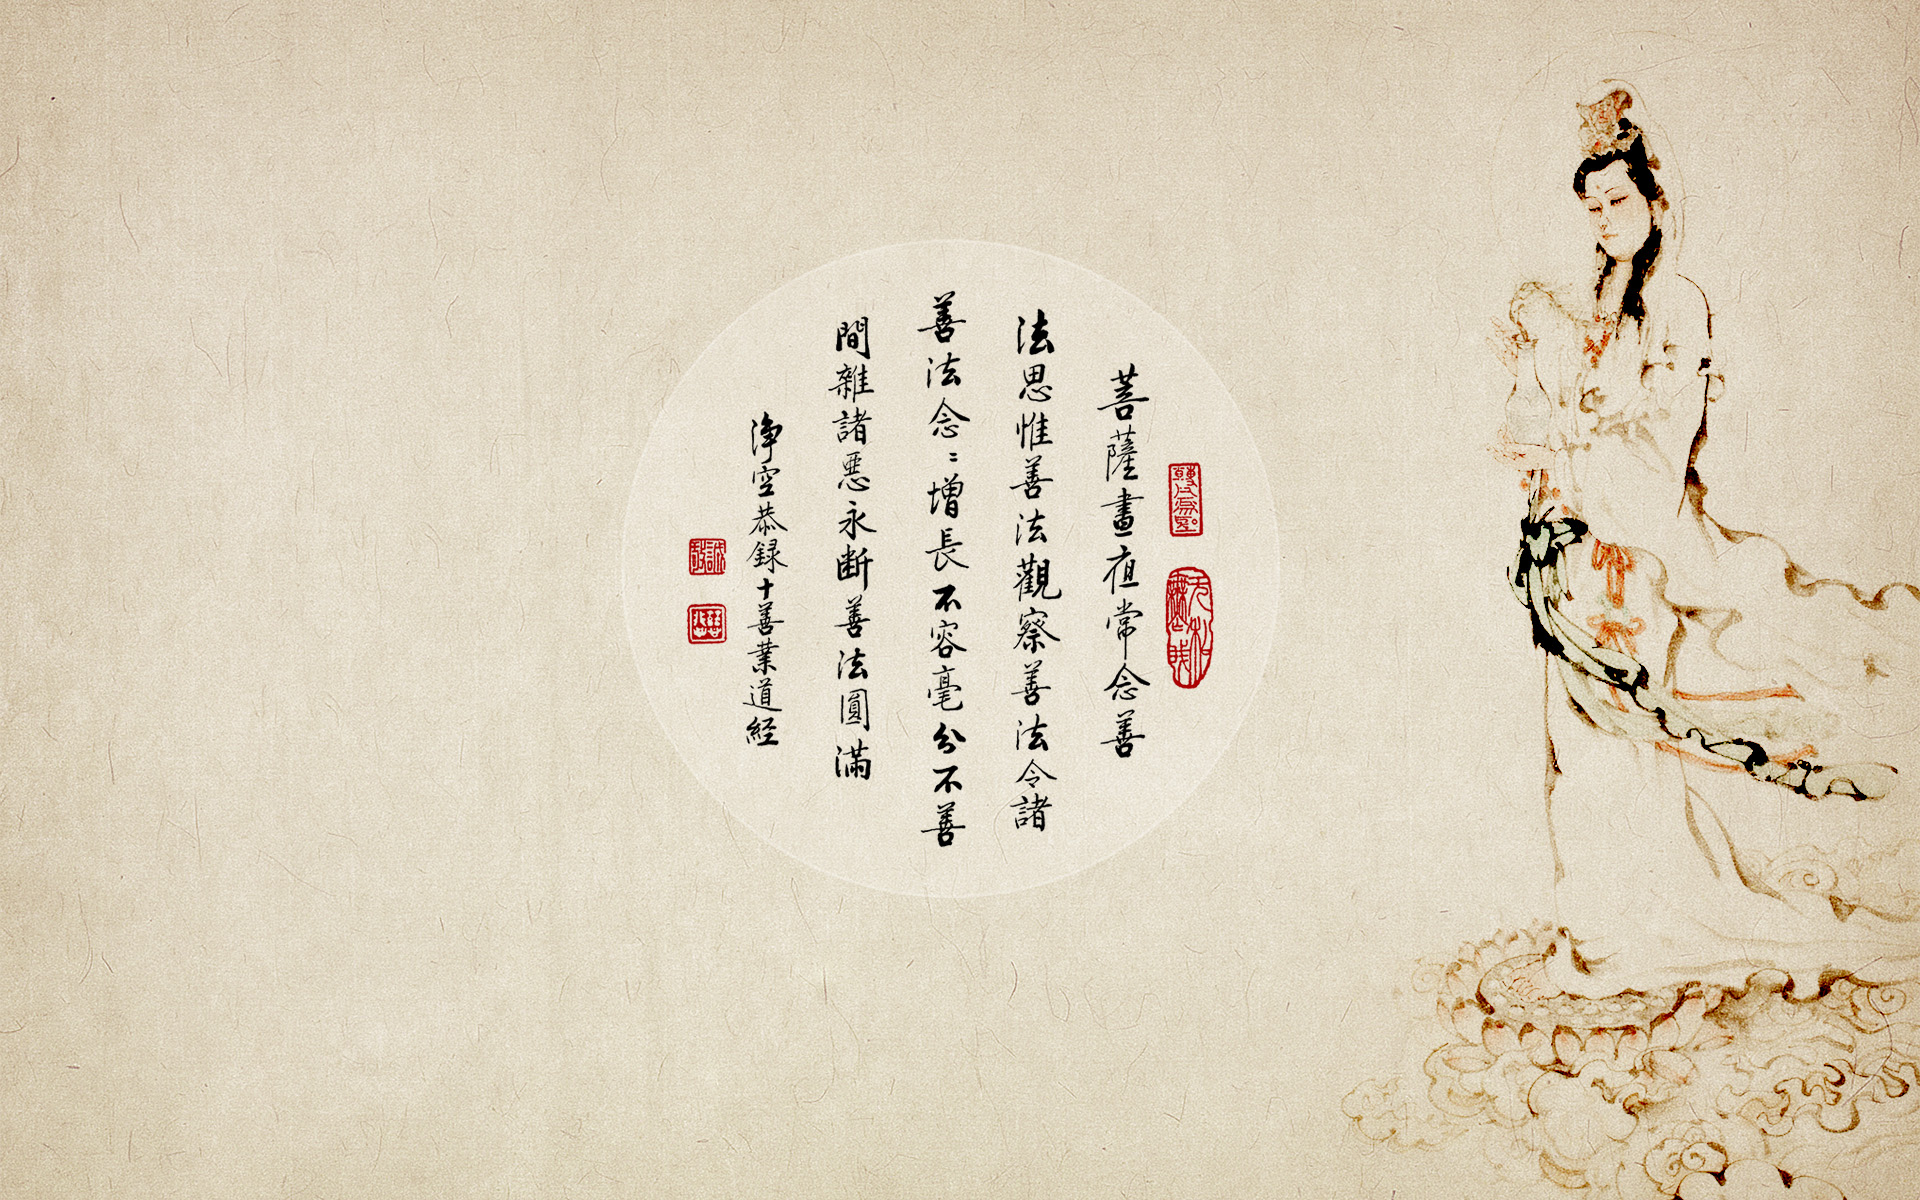 菩薩晝夜常念善
法思惟善法觀察善法令諸
善法念〻增長不容毫分不善
間雜諸惡永断善法圓滿
淨空恭録十善業道経